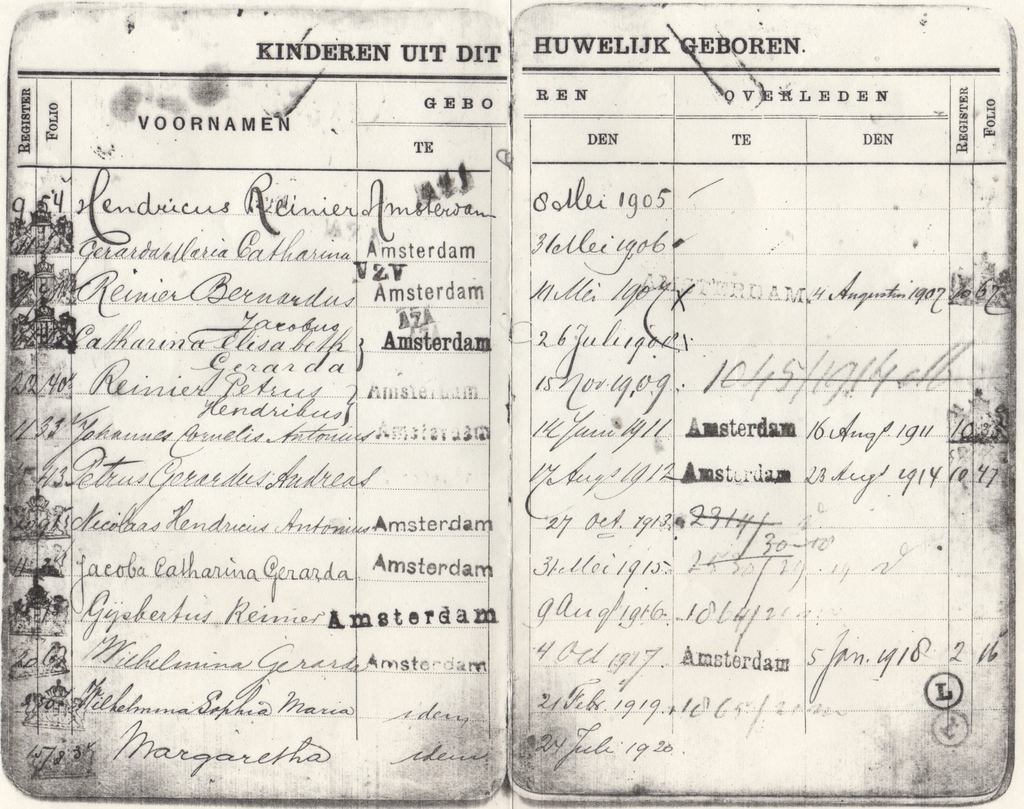 KINDEREN UIT DIT HUWELIJK GEBOREN.
REGISTER FOLIO VOORNAMEN GEBOREN OVERLEDEN REGISTER FOLIO
TE DEN TE DEN
9 54 Hendricus Reinier Amsterdam 8 Mei 1905
Gerarda Maria Catharina Amsterdam 31 Mei 1906
VZV
Reinier Bernardus Amsterdam 11 Mei 1907 AMSTERDAM 4 Augustus 1907 67
Jacobus
Catharina Elisabeth Amsterdam 26 Juli 1908
Gerarda
22 40 Reinier Petrus Amsterdam 15 Nov. 1909. 1045/1914
Hendrikus
11 33 Johannes Cornelis Antonius Amsterdam 14 Juni 1911 Amsterdam 16 Augs 1911 10
43 Petrus Gerardus Andreas 17 Augs 1912 Amsterdam 23 Augs 1914 10 47
Nicolaas Hendricus Antonius Amsterdam 27 Oct. 1913.
30-10
Jacoba Catharina Gerarda Amsterdam 31 Mei 1915
Gijsbertus Reinier Amsterdam 9 Aug 1916 1864/
Wilhelmina Gerarda Amsterdam 4 Oct 1917 Amsterdam 5 Jan. 1918 2 16
L
Wilhelmina Sophia Maria idem 21 Febr. 1919. 1865/
Margaretha idem 24 Juli 1920.